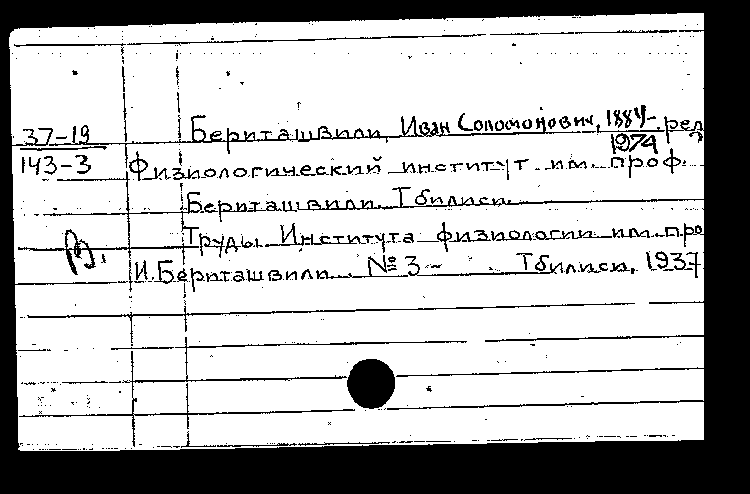 37-19
143-3
Бериташвили, Иван Соломонович, 1884-1974 ред
Физиологический институт им. проф.
Бериташвили. Тбилиси.
Труды Института физиологии им. про
И. Бериташвили. № 3 - Тбилиси, 1937